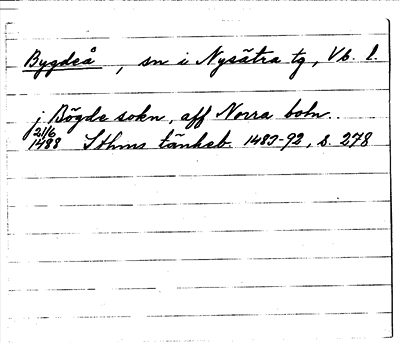 Bygdeå, sn i Nysätra tg, Vb. l.
j Bögde sokn, aff Norra botn..
21/6 1488 Sthms tänkeb. 1483-92, s. 278